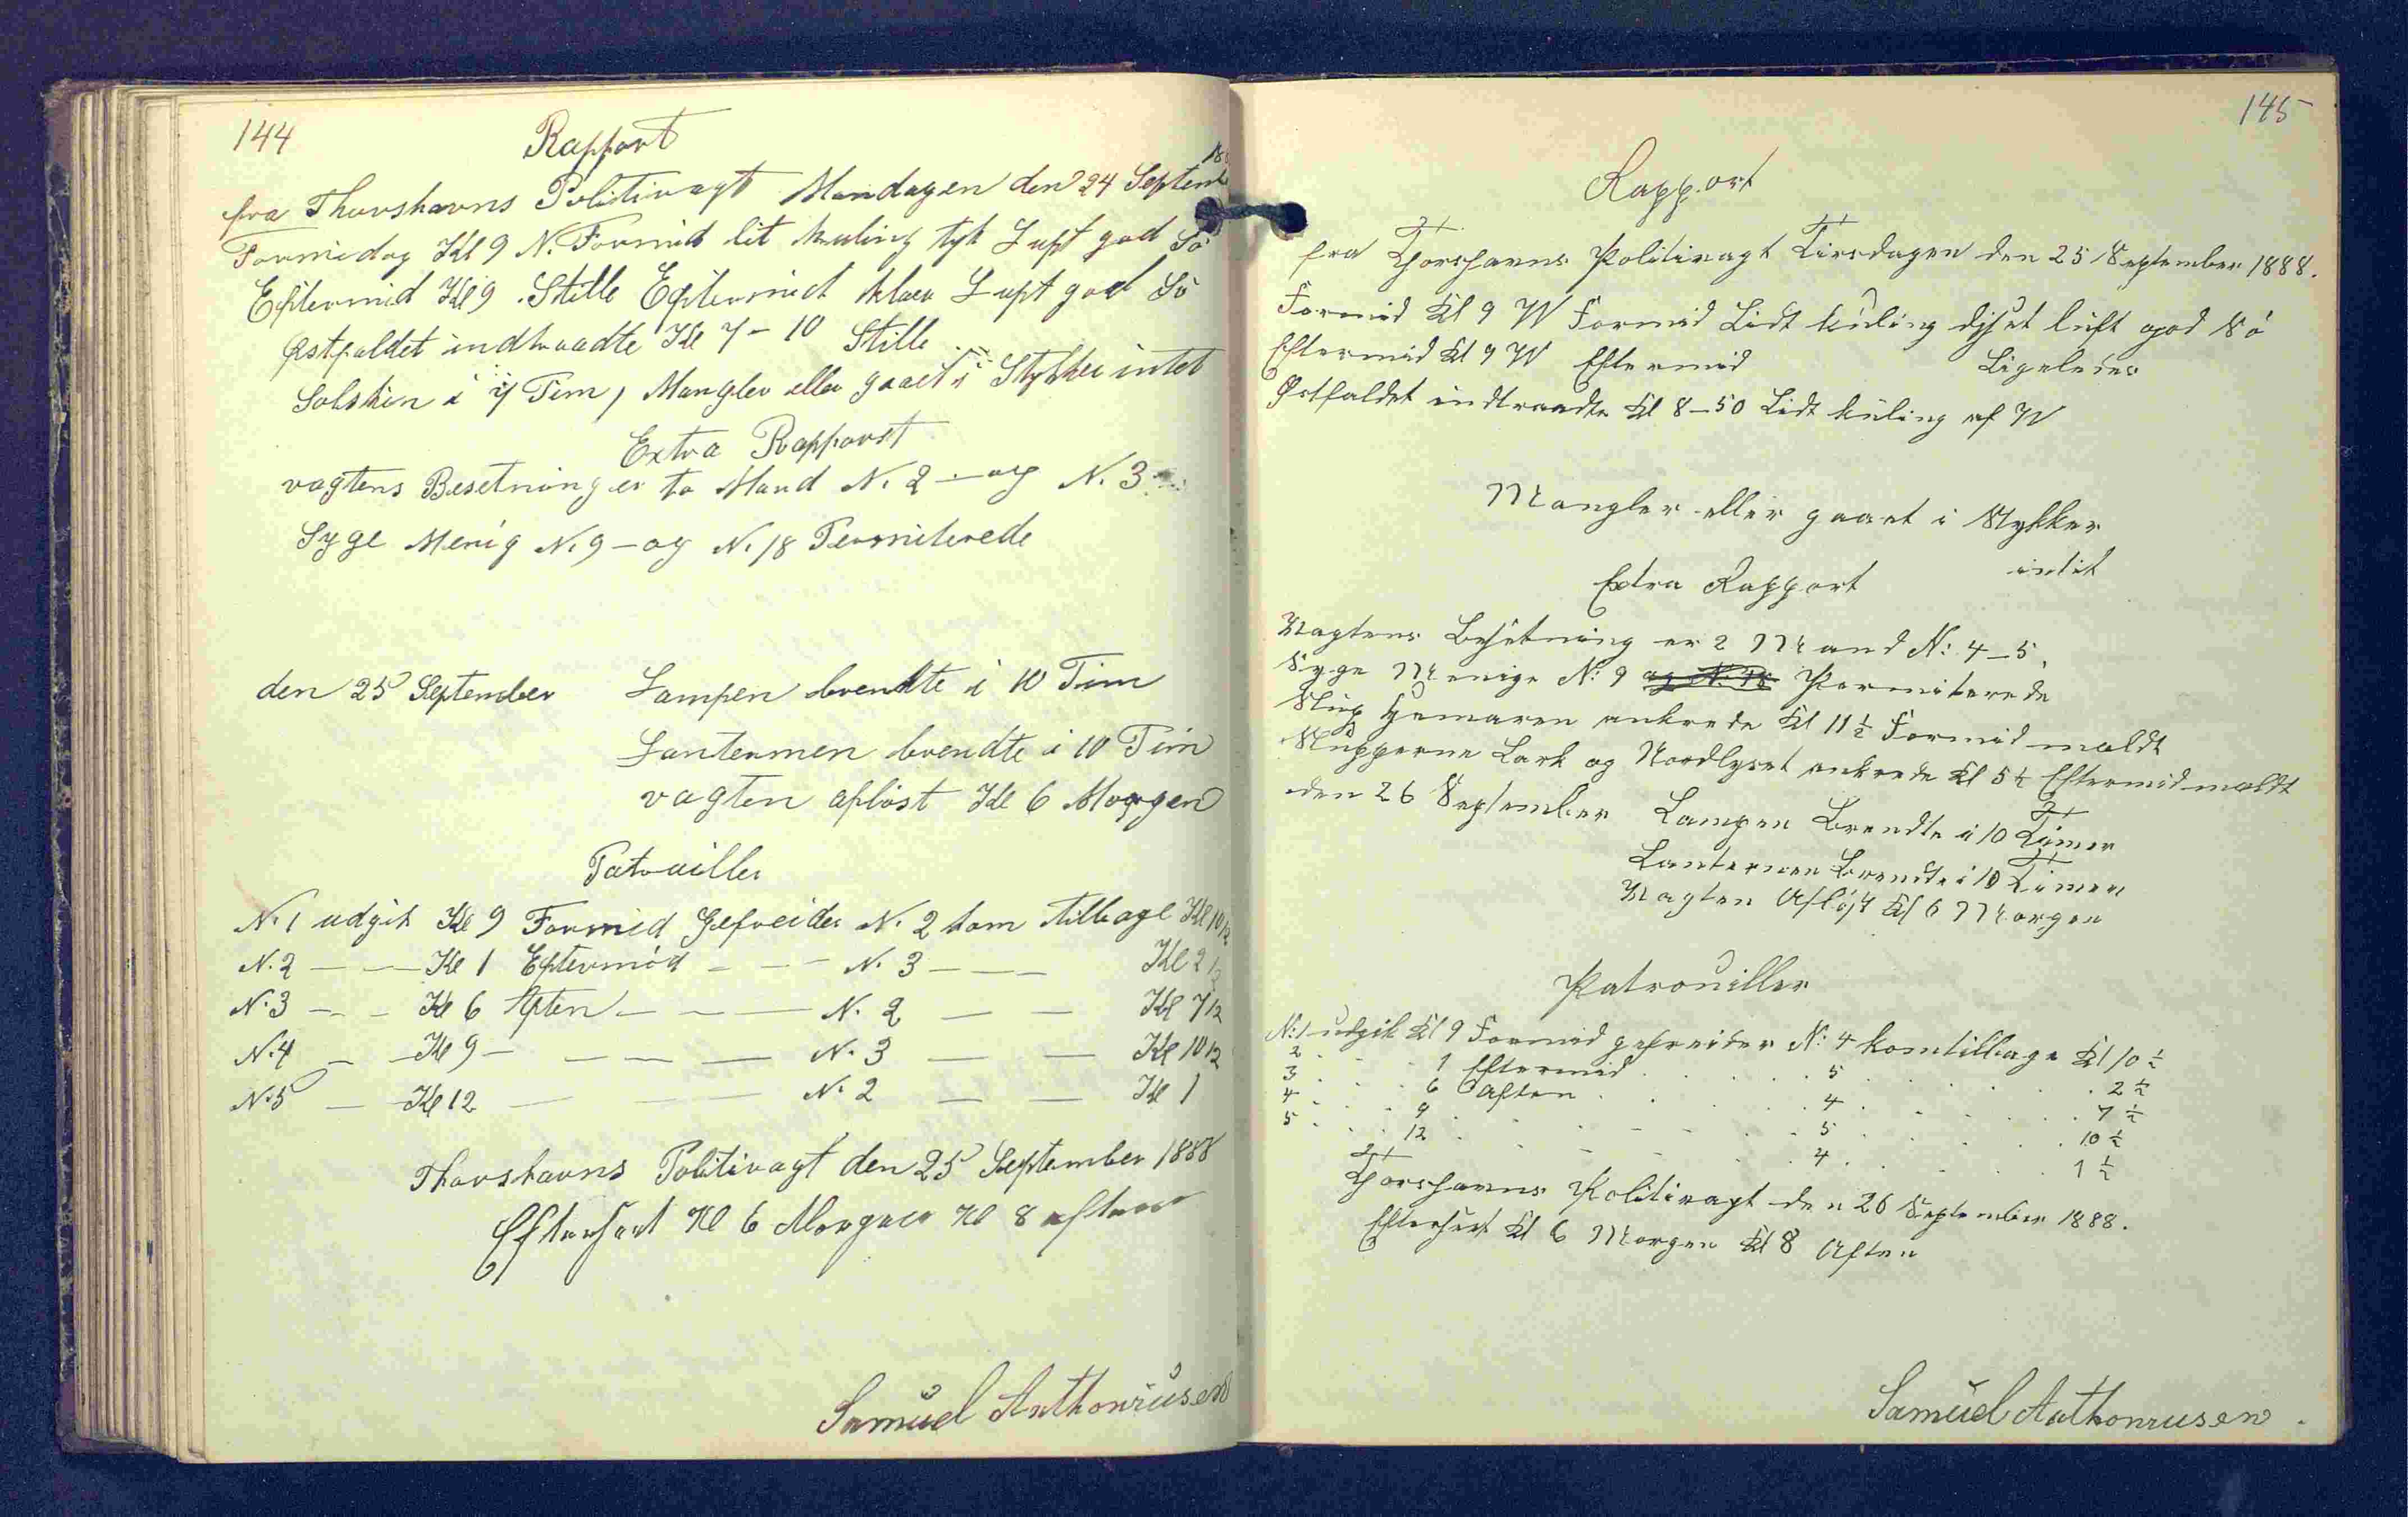 144
Rapport
fra Thorshavns Politivagt Mandagen den 24 Septemb
Formidag Kl 9 N. Formid lit kuling tyk Luft god Sö
Eftermid Kl 9 Stille Eftermid klar Luft god Sö
Østfaldet indtraadte Kl 7-10 Stille
Solskin i 4 Tim, Mangler eller gaaet i Stykker intet
Extra Rapport
vagtens Besetning er to Mand N. 2 - og N. 3
Syge Menig N. 9 - og N. 18 Permiterede
den 25 September Lampen brendte i 10 Tim
Lanternen brendte i 10 Tim
vagten aflöst Kl 6 Morgen
Patrailler
N. 1 udgik Kl 9 Formid Gefreider N. 2 kom tilbage Kl 10 1/2
N. 2 — — Kl 1 Eftermid — — N. 3 — — Kl 2 1/2
N. 3 — — Kl 6 Aften — — N. 2 — — Kl 7 1/2
N. 4 — — Kl 9 — — — N. 3 — — Kl 10 1/2
N. 5 — Kl 12 — — N. 2 — — Kl 1
Thorshavns Politivagt den 25 September 1888
Efterseet Kl 6 Morgen Kl 8 aften
Samuel Anthoniusen
145
Rapport
fra Thorshavns Politivagt Tirsdagen den 25 September 1888.
Formid Kl 9 W Formid Lidt kuling luft god Sö
Eftermid Kl 9 W Eftermid Ligeledes
Østfaldet indtraadte Kl 8-50 Lidt kuling af W
Mangler eller gaaet i Stykker
intet
Extra Rapport
Vagtens Besetning er 2 Mand N: 4-5.
Syge Menige N: 9 og N: 18 Permiterede
Slup ankrede Kl 11 1/2 Formid maldt
Slupperne Lark og Nordlyset ankrede Kl 5 1/2 Eftermid maldt
den 26 September Lampen Brendte i 10 Timer
Lanternen Brendte i 10 Timer
Vagten Aflöst Kl 6 Morgen
Patrouiller
N: 1 udgik Kl 9 Formid gefreider N: 4 kom tilbage Kl 10 1/2
2 . . . 1 Eftermid . . . 5 . . . 2 1/2
3 . . . 6 Aften . . . 4 . . . 7 1/2
4 . . . 9 . . . 5 . . . 10 1/2
5 . . . 12 . . . 4 . . . 1 1/2
Thorshavns Politivagt den 26 September 1888.
Efterseet Kl 6 Morgen Kl 8 Aften
Samuel Anthoniusen.